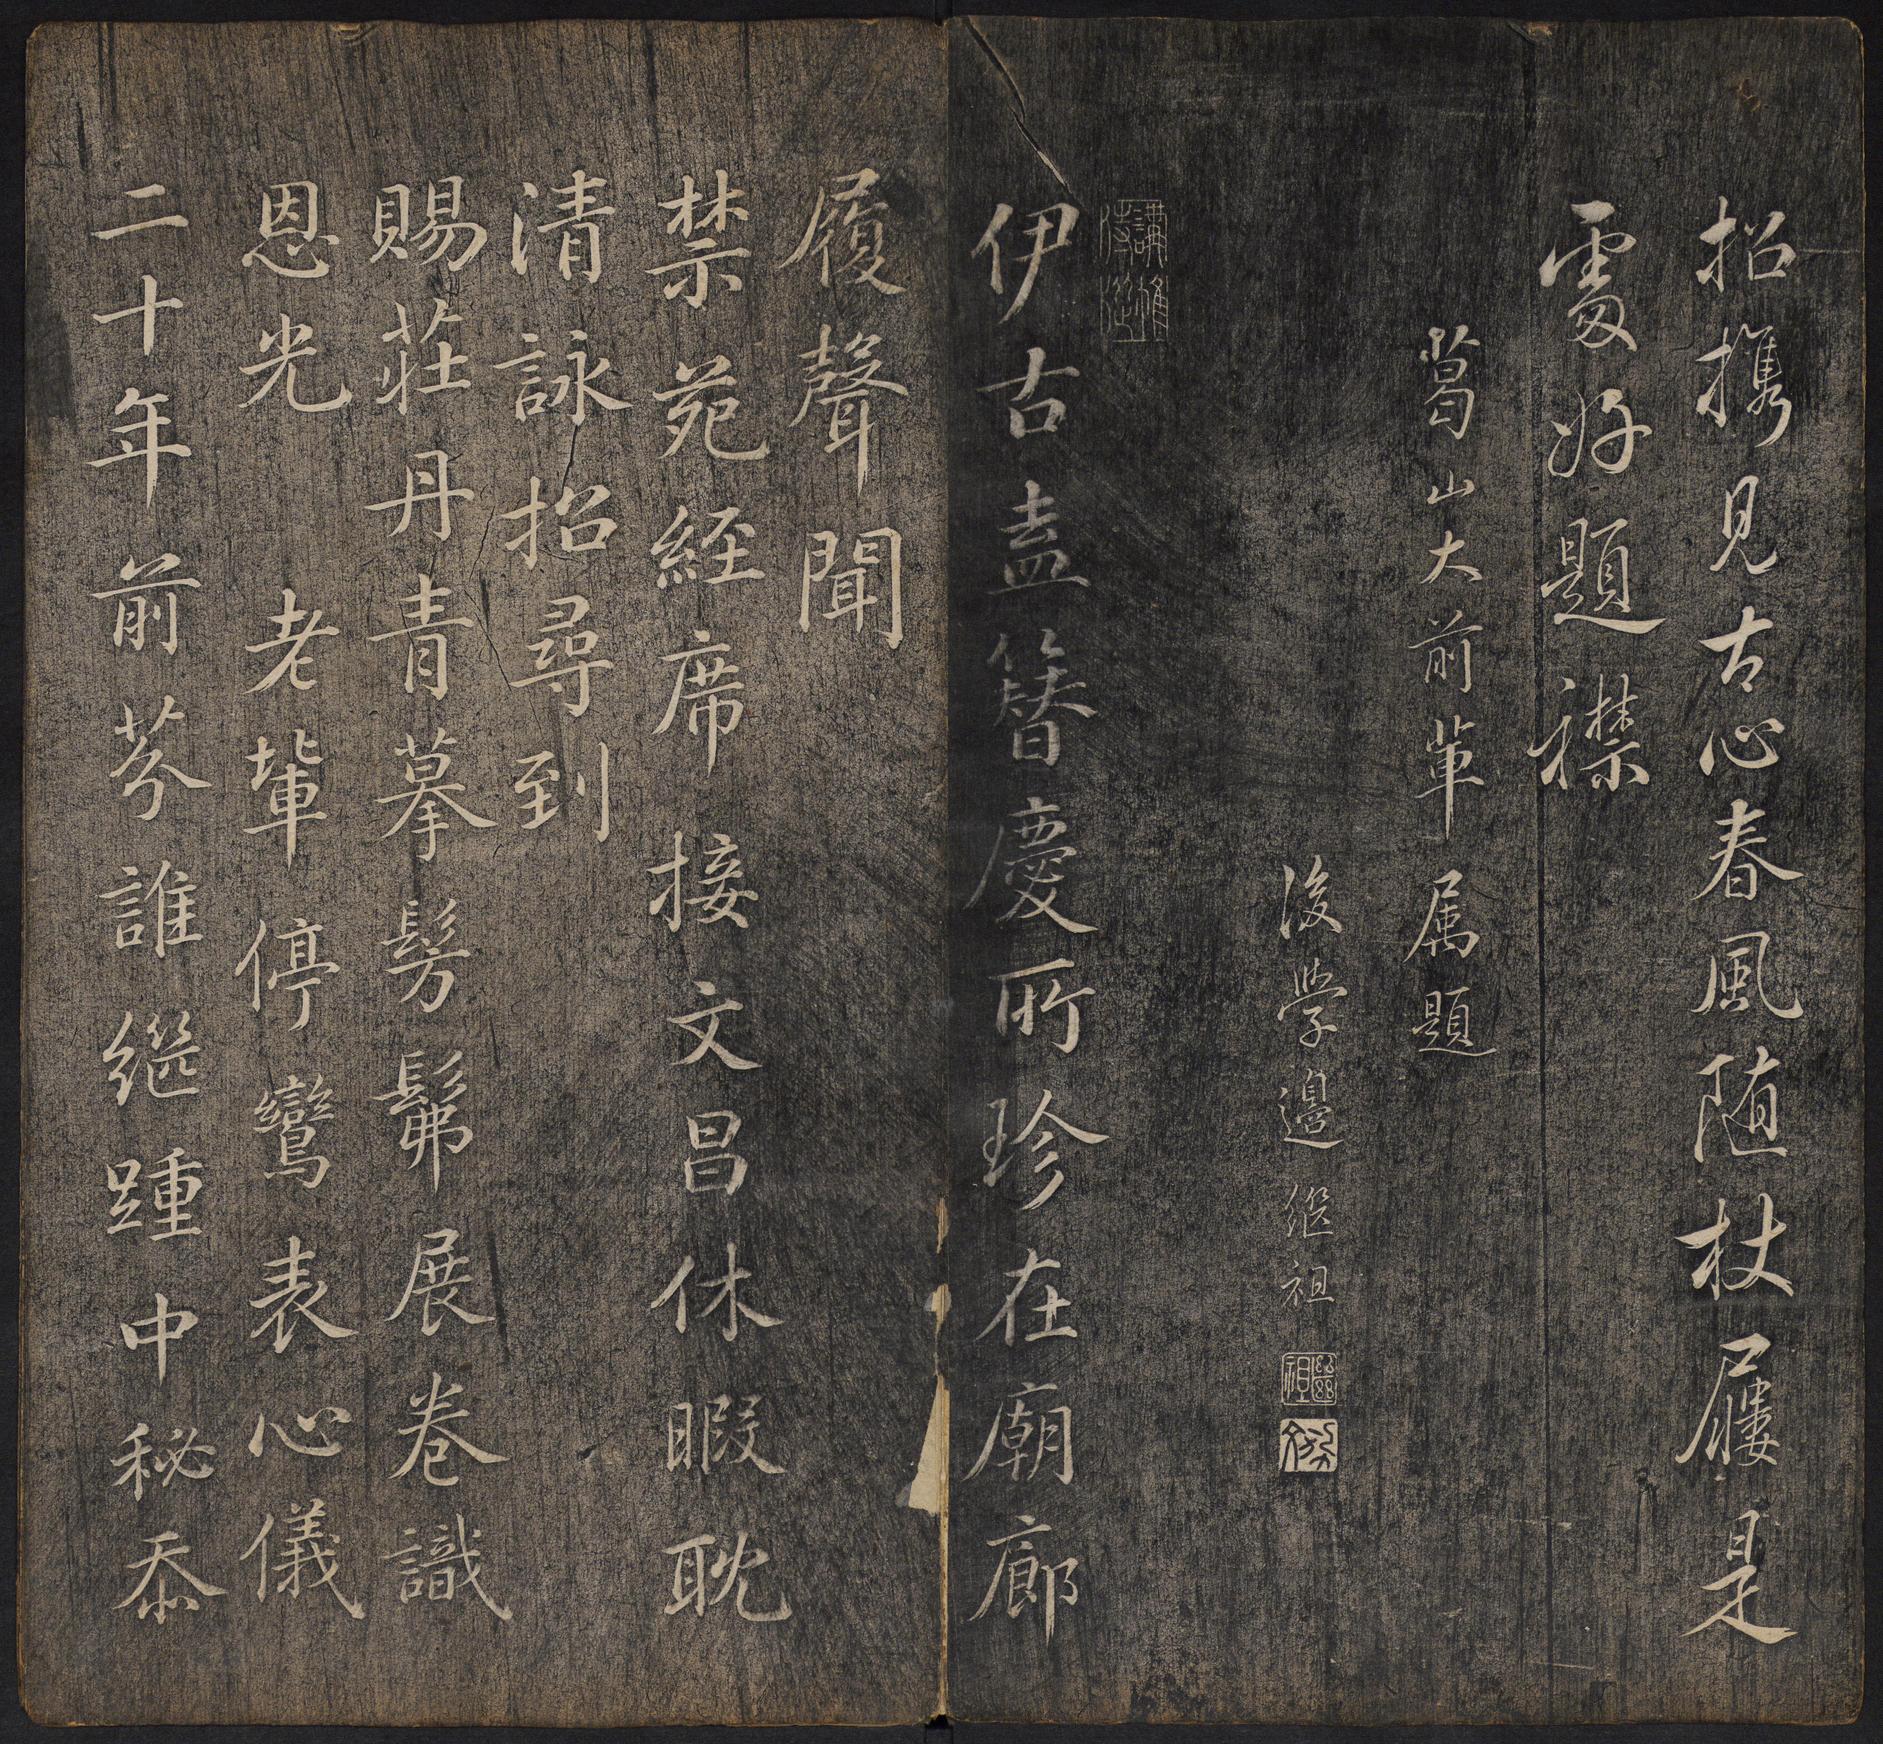 招攜見古心春風随杖屨是
處好題襟
葛山大前輩属題
後學邊継祖
繼祖
伊古盍簪慶所珍在廟廊
履聲聞
禁苑経席接文昌休暇耽
清詠招尋到
賜莊丹青摹髣髴展卷識
恩光 老輩停鸞表心儀
二十年前芬誰継踵中秘忝